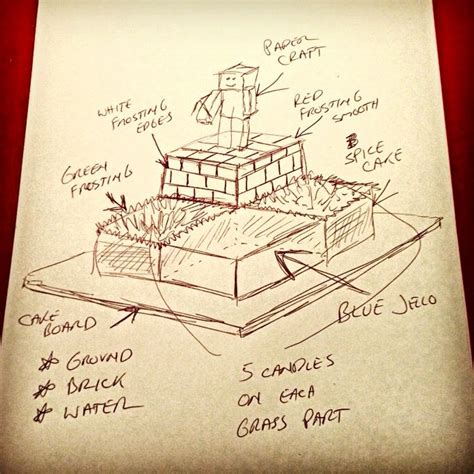 PAPER
CRAFT
WHITE
FROSTING
EDGES
RED
FROSTING
SMOOTH
GREEN
FROSTING
SPICE
CAKE
CAKE
BOARD
BLUE JELLO
GROUND
BRICK
WATER
5 CANDLES
ON EACH
GRASS PART